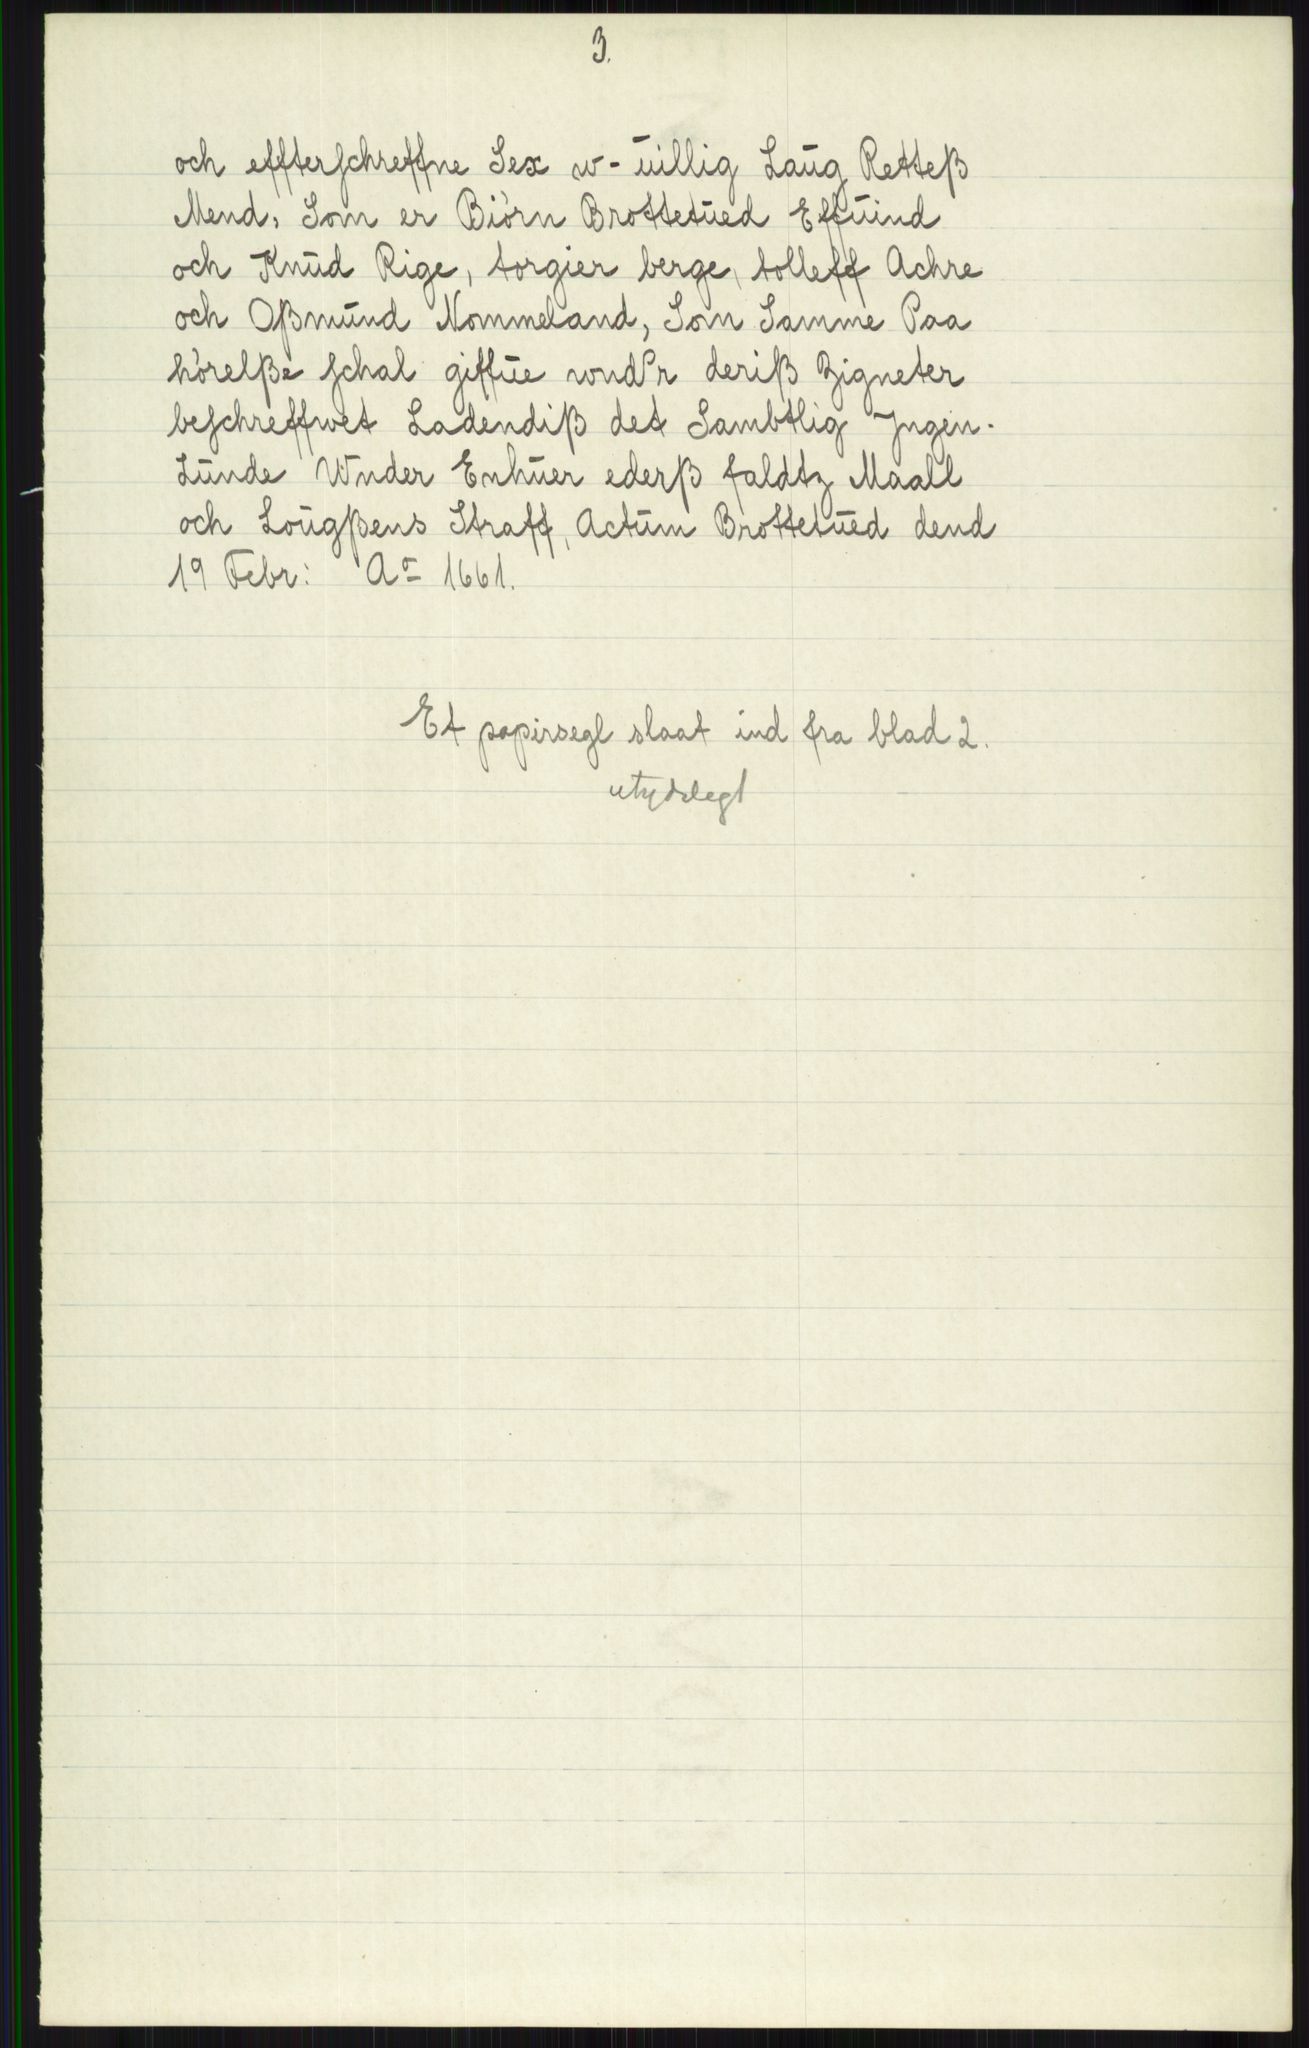 3.
och effterschreffne Sex w-uillig Laug Retteß
Mend, Som er Biörn Brottetued Effuind
och Knud Rige, torgier berge, tolleff Achre
och Oßmund Nommeland, Som Samme Paa
hörelße schal giffue wnder deriß Zigneter
beschreffwet Ladendiß det Sambtlig Jngen-
Lunde Wnder Enhuer ederß faldtz Maall
och Lougßens Straff, Actum Brottetued dend
19 Febr: Ao 1661.
Et papirsegl slaat ind fra blad 2.
utydelegt